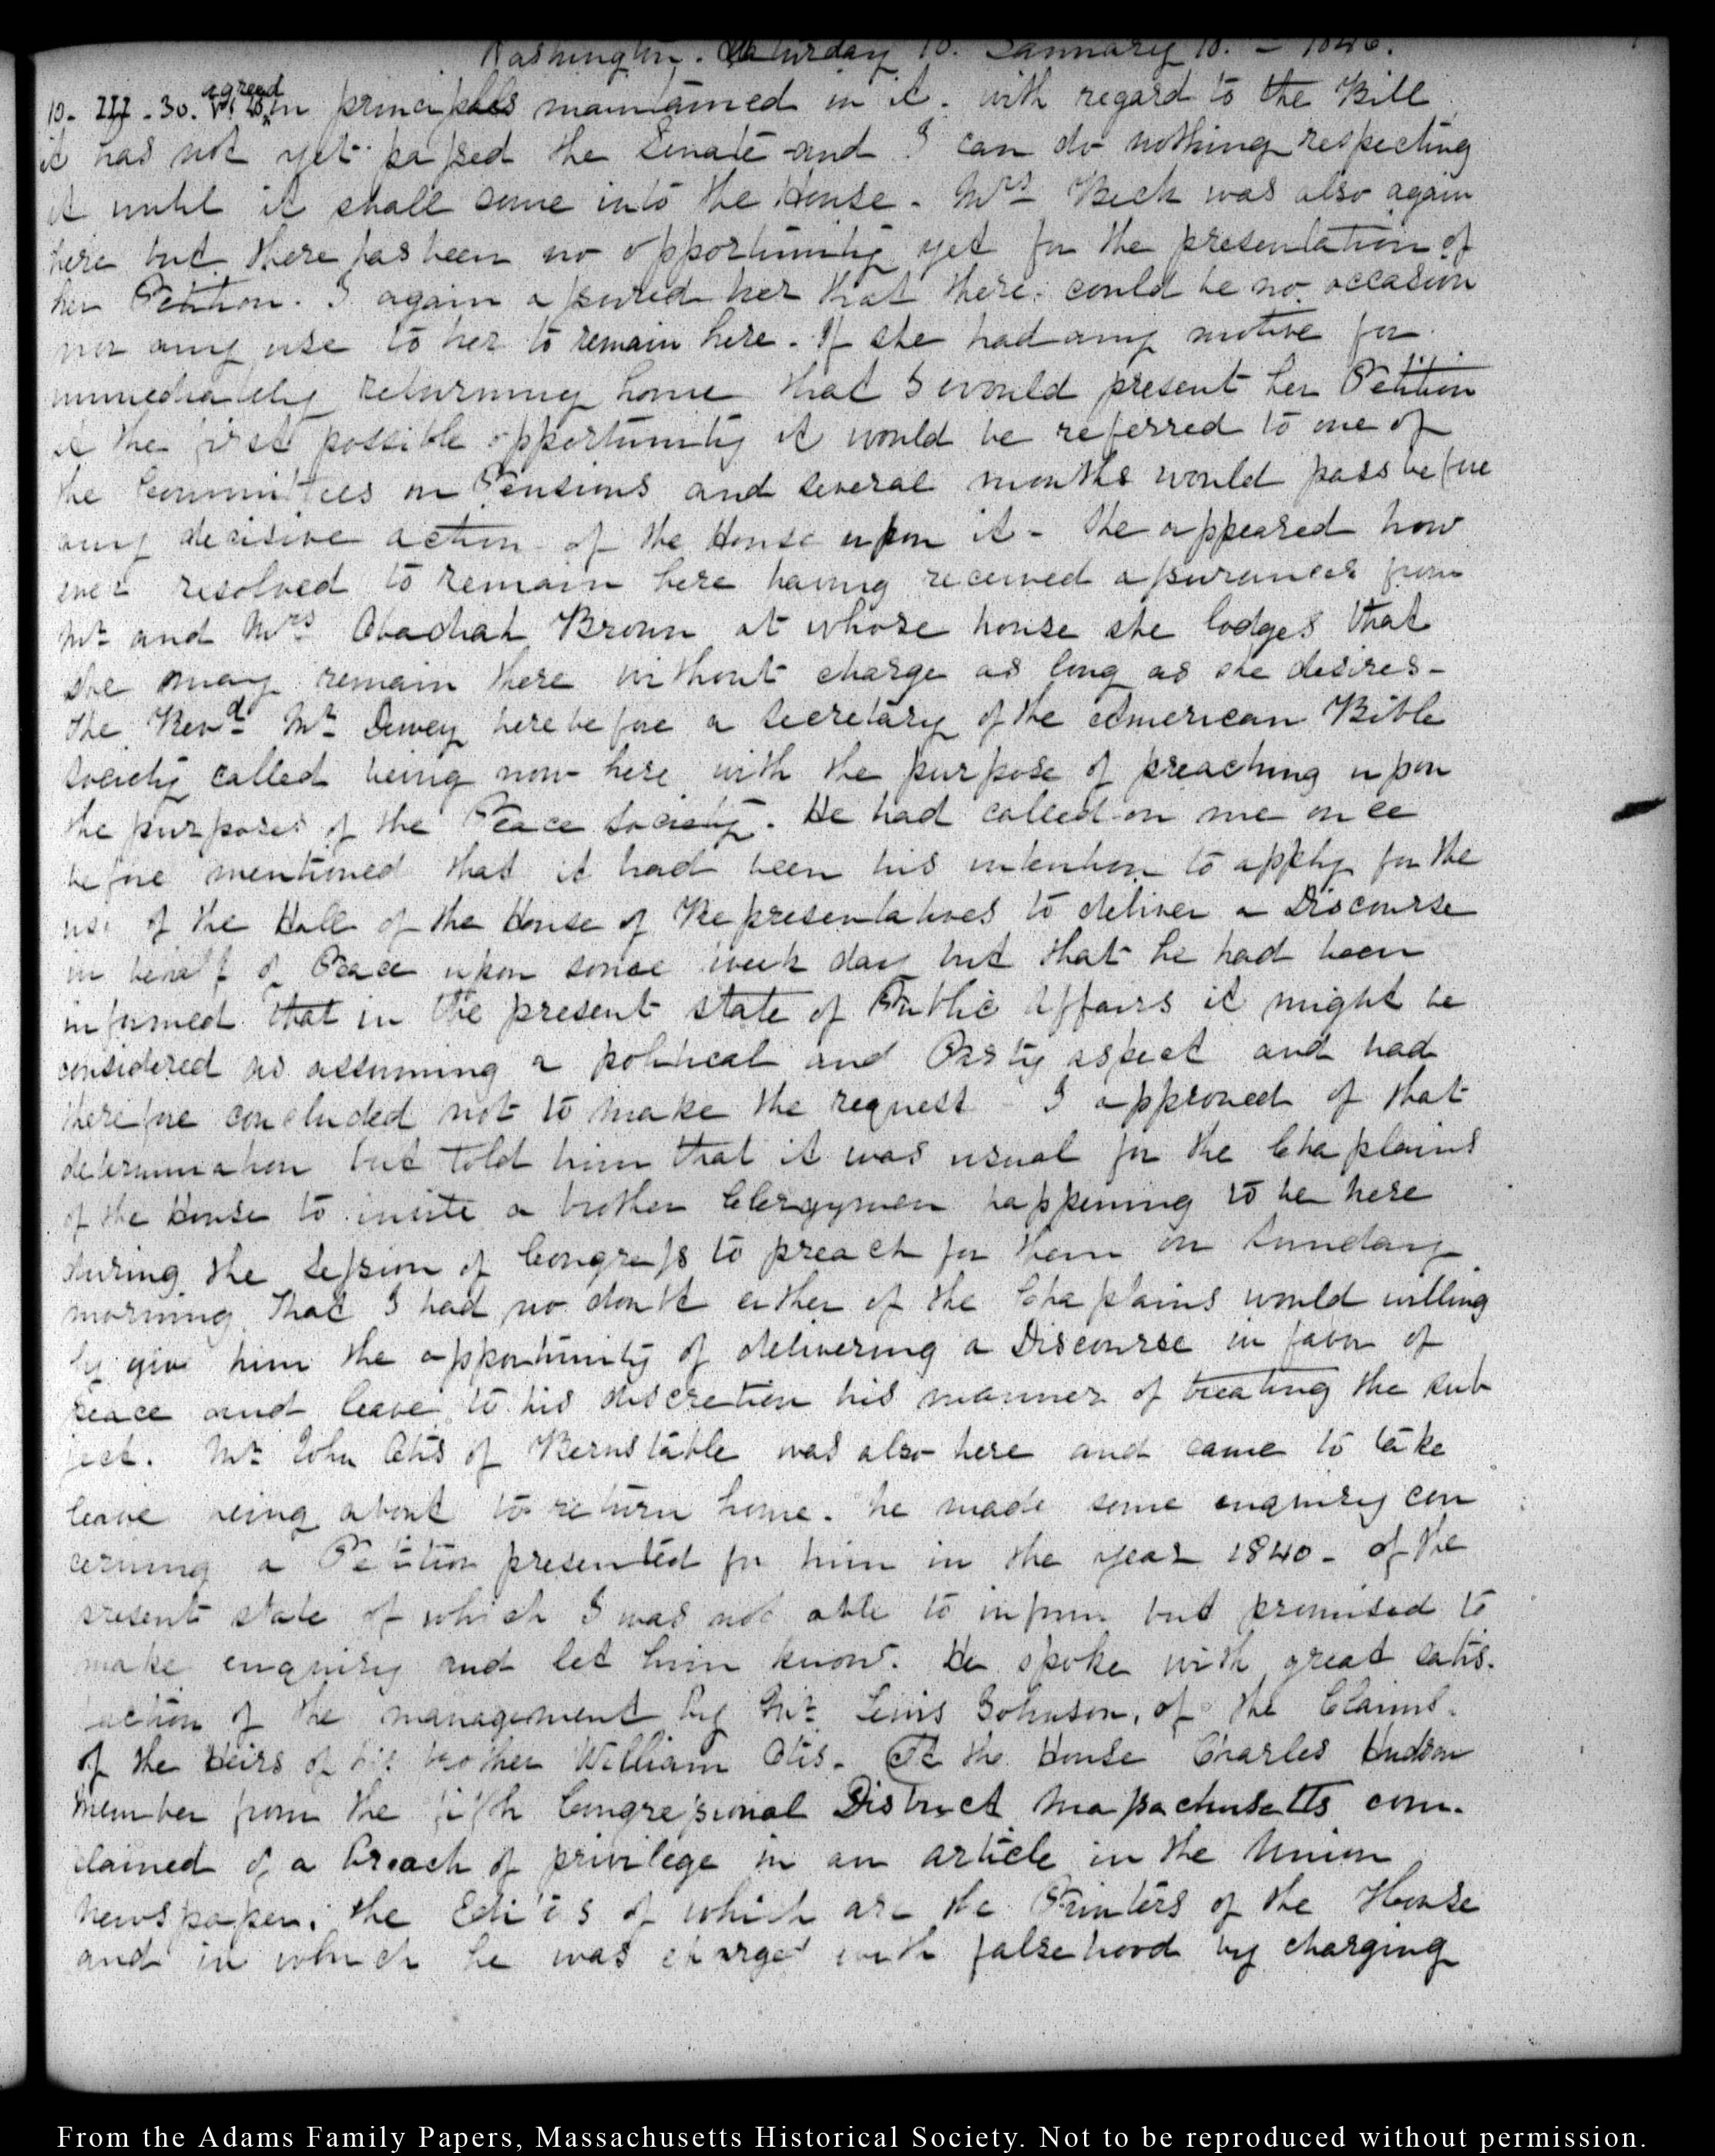 Washington. Saturday 10. January 10. – 1846.
agreed
10. III. 30. in principles maintained in it. with regard to the Bill
it has not yet passed the Senate and I can do nothing respecting
it until it shall come into the House. Mrs Beck was also again
here but there has been no opportunity yet for the presentation of
her Petition. I again assured her that there could be no occasion
nor any use to her to remain here. If she had any motive for
immediately returning home that I would present her Petition
at the first possible opportunity it would be referred to one of
the Committees on Pensions and several months would pass before
any decisive action of the House upon it – She appeared how
ever resolved to remain here having received assurances from
Mr and Mrs Obadiah Brown at whose house she lodges that
she may remain there without charge as long as she desires –
The Revd Mr Dewey herebefore a Secretary of the American Bible
Society called being now here with the purpose of preaching upon
the purposes of the Peace Society. He had called on me once
before mentioned that it had been his intention to apply for the
use of the Hall of the House of Representatives to deliver a Discourse
in behalf of Peace upon some week day but that he had been
informed that in the present state of Public Affairs it might be
considered as assuming a political and Party aspect and had
therefore concluded not to make the request I approved of that
determination but told him that it was usual for the Chaplains
of the House to invite a brother Clergyman happening to be here
during the Session of Congress to preach for them on Sunday
morning, that I had no doubt either of the Chaplains would willing
ly give him the opportunity of delivering a Discourse in favor of
peace and leave to his discretion his manner of treating the sub
ject. Mr John Otis of Bernstable was also here and came to take
leave being about to return home. he made some enquiry con
cerning a Petition presented for him in the year 1840 – of the
present state of which I was not able to inform but promised to
make enquiry and let him know. He spoke with great satis.
faction of the management by Mr Lewis Johnson, of the Claims.
of the Heirs of his brother William Otis. At the House Charles Hudson
member from the fifth Congressional District Massachusetts com.
plained of a breach of privilege in an article in the Union
Newspaper, the Editors of which are the Printers of the House
and in which he was charged with falsehood by charging
From the Adams Family Papers, Massachusetts Historical Society. Not to be reproduced without permission.